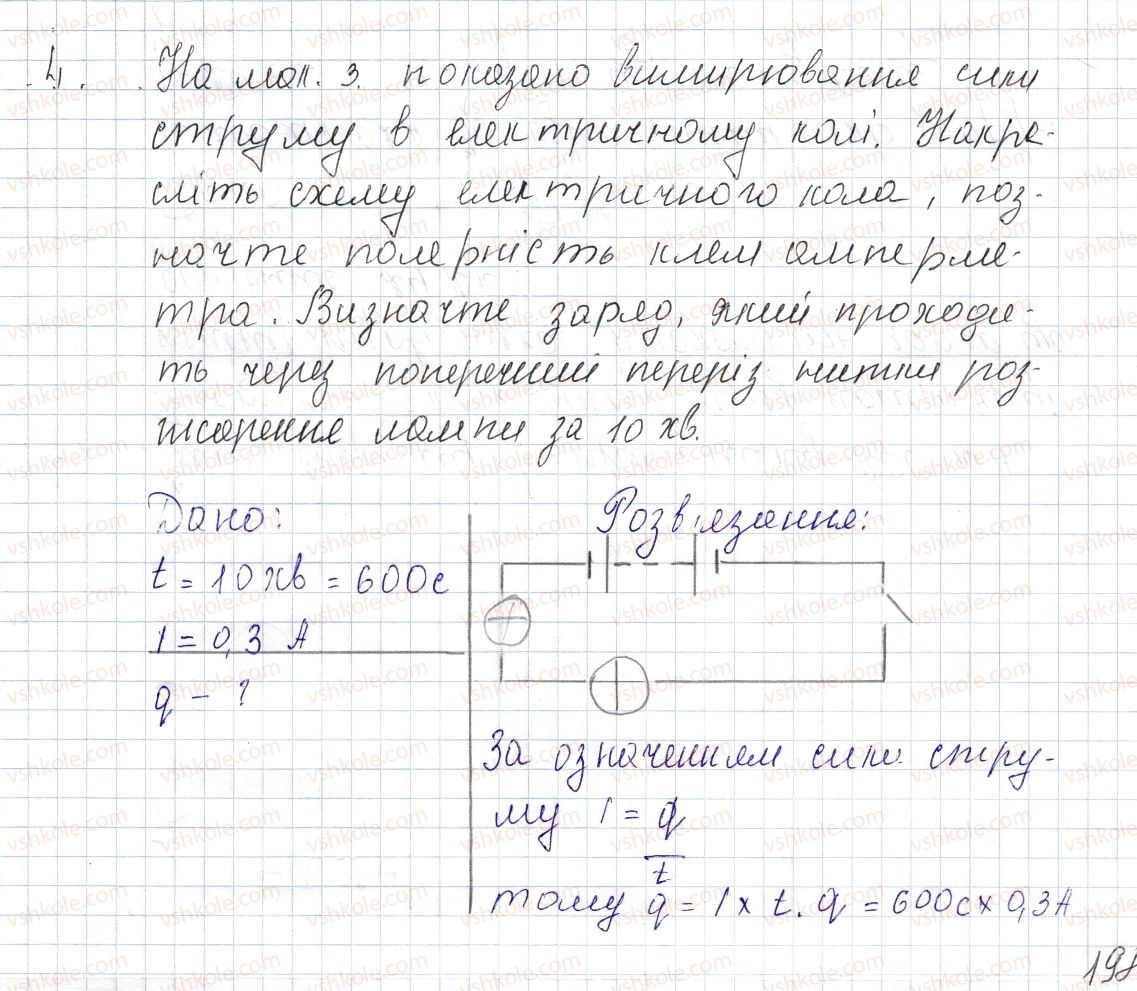 4. На мал. 3. показано вимірювання сили
струму в електричному колі. Накре-
сліть схему електричного кола, поз-
начте полярність клем амперме-
тра. Визначте заряд, який проходи-
ть через поперечний переріз нитки роз-
жарення лампи за 10 хв.
Дано:
t = 10 хв = 600с
I = 0,3 А
q - ?
Розв'язання:
За означенням сила стру-
му I = q
t
тому q = I x t. q = 600с x 0,3А
198
vshkole.com